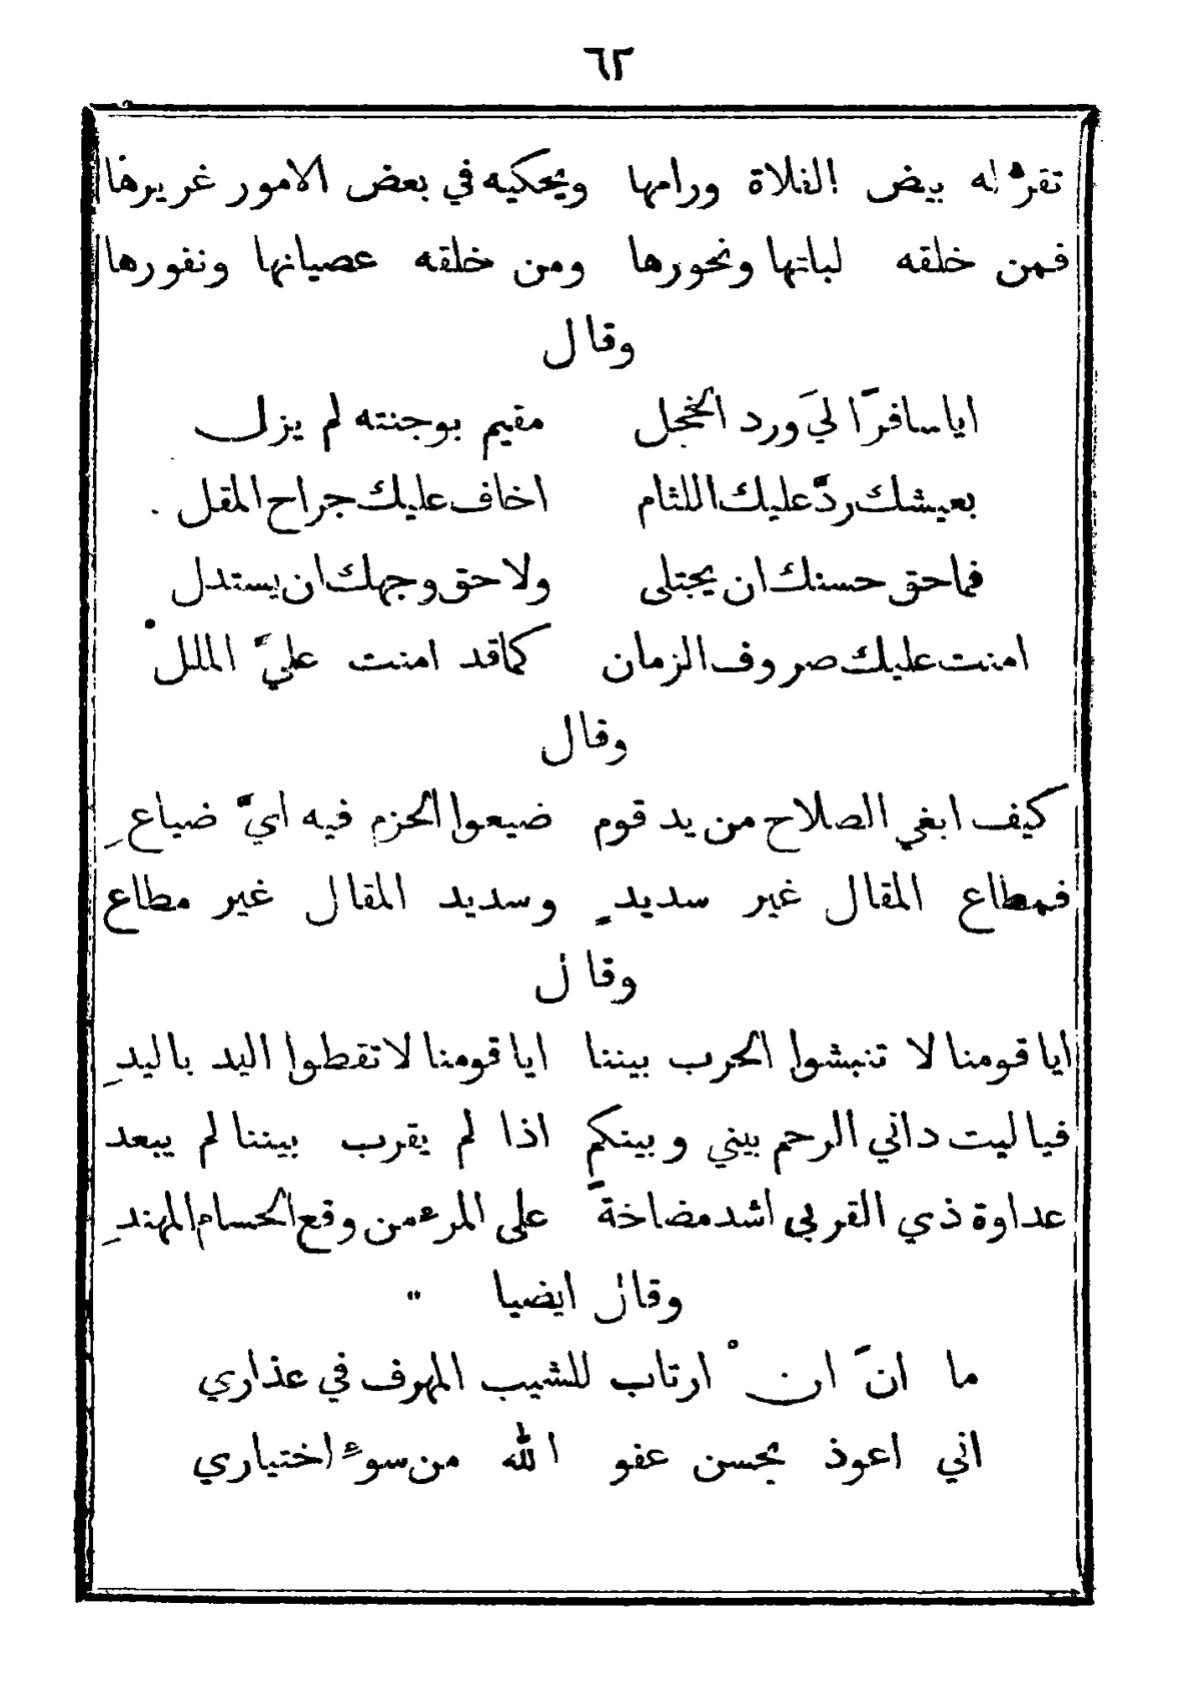 ٦٢
تقرّ له بيض الفلاة ورامها ويحكيه في بعض الامور غريرها
فمن خلقه لباتها ونحورها ومن خلقه عصيانها ونفورها
وقال
اياسافرًا ليَ ورد الخجل مقيم بوجنته لم يزل
بعيشك ردَّ عليك اللثام اخاف عليك جراح المقل .
فماحق حسنك ان يجتلى ولاحق وجهك ان يستدل
امنت عليك صروف الزمان كما قد امنت عليَّ الملل
وقال
كيف ابغي الصلاح من يد قوم ضيعوا الحزم فيه ايَّ ضياعِ
فمطاع المقال غير سديدٍ وسديد المقال غير مطاع
وقال
ايا قومنا لا تنبشوا الحرب بيننا ايا قومنا لا تقطوا اليد باليدِ
فيا ليت داني الرحم بيني وبينكم اذا لم يقرب بيننا لم يبعد
عداوة ذي القربى اشد مضاخةً على المرء من وقع الحسام المهندِ
وقال ايضيا "
ما انَ انْ ارتاب للشيب المهرف في عذاري
اني اعوذ بحسن عفو الله من سوءِ اختياري